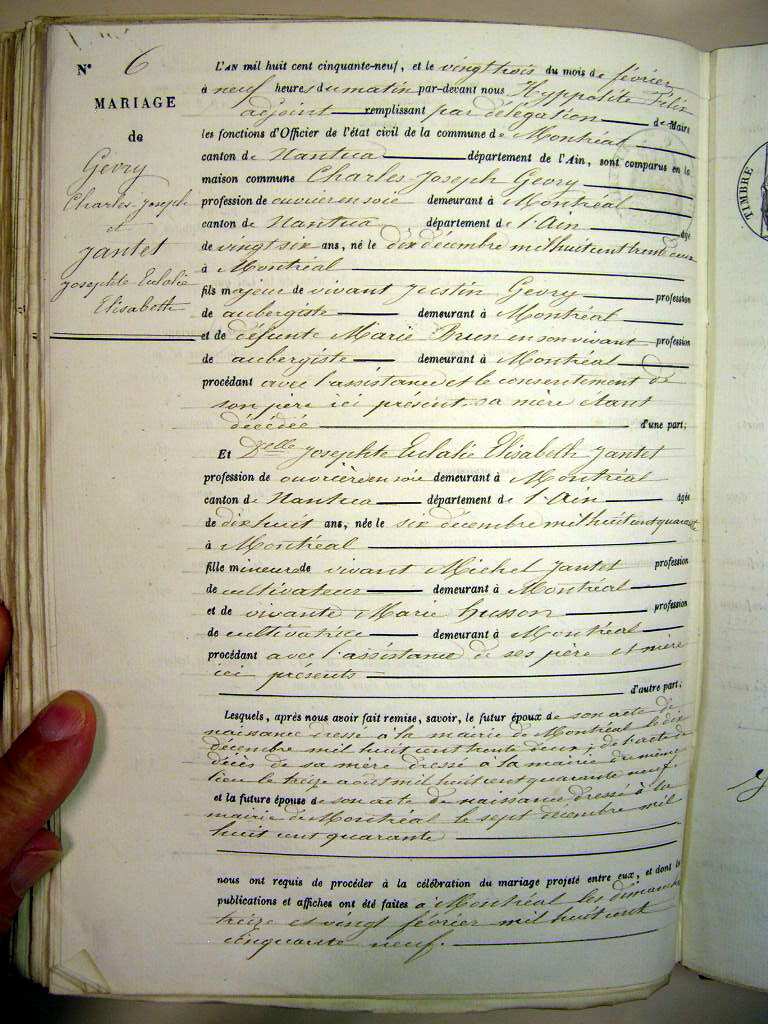 N° 6
MARIAGE
de
Gevry
Charles Joseph
et
Jantet
Josephte Eulalie
Elisabeth
L'AN mil huit cent cinquante-neuf, et le vingt trois du mois de février
à neuf heures du matin par-devant nous Hyppolite Félix
adjoint remplissant par délégation de Maire
les fonctions d'Officier de l'état civil de la commune de Montréal
canton de Nantua département de l'Ain, sont comparus en la
maison commune Charles Joseph Gevry
profession de ouvrier en soie demeurant à Montréal
canton de Nantua, département de l'Ain âgé
de vingt six ans, né le dix décembre mil huit cent trente deux
à Montréal
fils majeur de vivant Justin Gevry profession
de aubergiste demeurant à Montréal
et de défunte Marie Brun en son vivant profession
de aubergiste demeurant à Montréal
procédant avec l'assistance et le consentement de
son père ici présent, sa mère étant
décédée d'une part;
Et Delle Josephte Eulalie Elisabeth Jantet
profession de ouvrière en soie demeurant à Montréal
canton de Nantua département de l'Ain âgée
de dix huit ans, née le six décembre mil huit cent quarante
à Montréal
fille mineure de vivant Michel Jantet profession
de cultivateur demeurant à Montréal
et de vivante Marie Husson profession
de cultivatrice demeurant à Montréal
procédant avec l'assistance de ses père et mère
ici présents
d'autre part;
Lesquels, après nous avoir fait remise, savoir, le futur époux de son acte de
naissance dressé à la mairie de Montréal le dix
décembre mil huit cent trente deux, de l'acte de
décès de sa mère dressé à la mairie du même
lieu le treize août mil huit cent quarante neuf.
et la future épouse de son acte de naissance dressé à la
mairie de Montréal le sept décembre mil
huit cent quarante
nous ont requis de procéder à la célébration du mariage projeté entre eux, et dont les
publications et affiches ont été faites à Montréal les dimanches
treize et vingt février mil huit cent
cinquante neuf.
TIMBRE